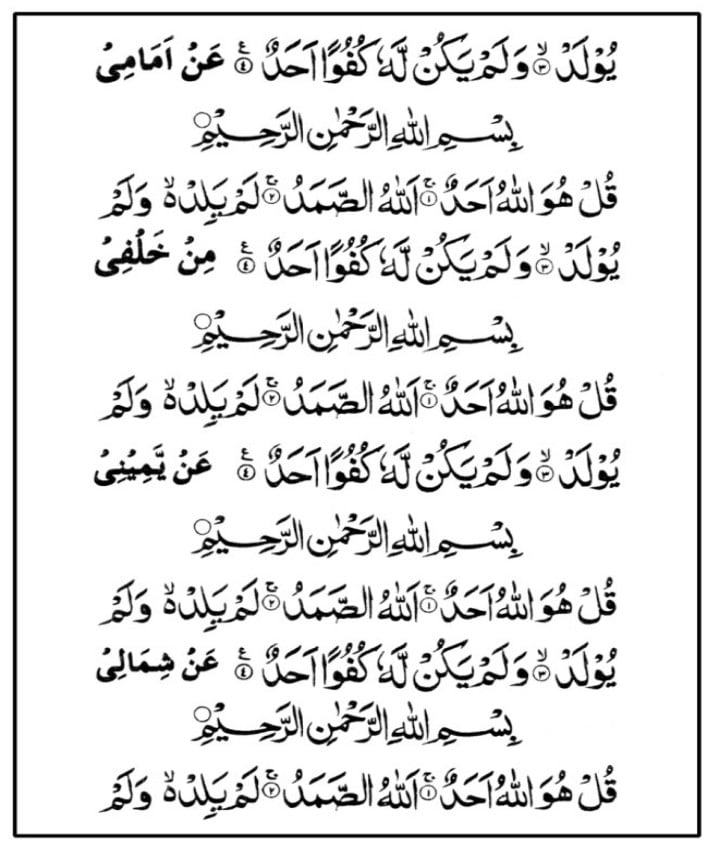 يُوْلَدْ ۙ﴿۳﴾ وَلَمْ يَكُنْ لَّهٗ كُفُوًا اَحَدٌ ﴿۴﴾ۧ عَنْ اَمَامِىْ
بِسْمِ اللّٰهِ الرَّحْمٰنِ الرَّحِيْمِ ○
قُلْ هُوَ اللّٰهُ اَحَدٌ ۚ﴿۱﴾ اَللّٰهُ الصَّمَدُ ۚ﴿۲﴾ لَمْ يَلِدْ ۙ۬ وَلَمْ
يُوْلَدْ ۙ﴿۳﴾ وَلَمْ يَكُنْ لَّهٗ كُفُوًا اَحَدٌ ﴿۴﴾ۧ مِنْ خَلْفِىْ
بِسْمِ اللّٰهِ الرَّحْمٰنِ الرَّحِيْمِ ○
قُلْ هُوَ اللّٰهُ اَحَدٌ ۚ﴿۱﴾ اَللّٰهُ الصَّمَدُ ۚ﴿۲﴾ لَمْ يَلِدْ ۙ۬ وَلَمْ
يُوْلَدْ ۙ﴿۳﴾ وَلَمْ يَكُنْ لَّهٗ كُفُوًا اَحَدٌ ﴿۴﴾ۧ عَنْ يَّمِيْنِىْ
بِسْمِ اللّٰهِ الرَّحْمٰنِ الرَّحِيْمِ ○
قُلْ هُوَ اللّٰهُ اَحَدٌ ۚ﴿۱﴾ اَللّٰهُ الصَّمَدُ ۚ﴿۲﴾ لَمْ يَلِدْ ۙ۬ وَلَمْ
يُوْلَدْ ۙ﴿۳﴾ وَلَمْ يَكُنْ لَّهٗ كُفُوًا اَحَدٌ ﴿۴﴾ۧ عَنْ شِمَالِىْ
بِسْمِ اللّٰهِ الرَّحْمٰنِ الرَّحِيْمِ ○
قُلْ هُوَ اللّٰهُ اَحَدٌ ۚ﴿۱﴾ اَللّٰهُ الصَّمَدُ ۚ﴿۲﴾ لَمْ يَلِدْ ۙ۬ وَلَمْ